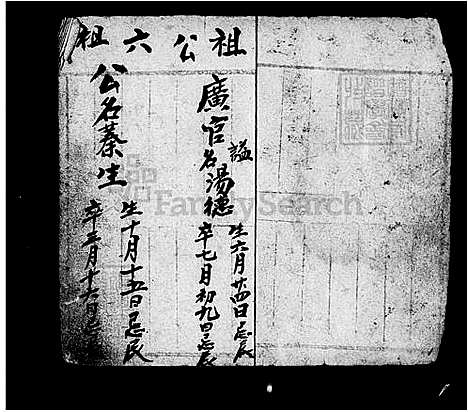 祖公六祖
廣官諡名湯德
生六月廿四日忌辰
卒七月初九日忌辰
公名蓁生
生十月十五日忌辰
卒三月十六日忌辰
FamilySearch